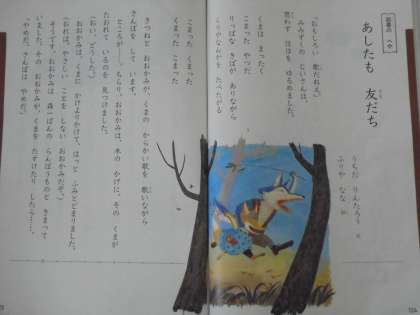 読書の へや
あしたも 友だち
うちだ りんたろう 文
ふりや なな 絵
「おもしろい 歌だねえ。」
みみずくの じいさんは、
思わず ほほを ゆるめました。
くまは まったく
こまった やつだ
りっぱな きばが ありながら
くりやなんかを たべたがる
こまった くまった
くまった こまった
きつねと おおかみが、くまの からかい歌を 歌いながら
さんぽを して います。
ところが――。もちろん、おおかみは、木の かげに、その くまが
たおれて いるのを 見つけました。
「おい、どうした。」
おおかみは、くまに かけよりかけて、はっと ふみとどまりました。
(おれは、やさしい ことを しない おおかみだぞ。)
そうです。おおかみは 森一ばんの らんぼうものと きまって
いました。その おおかみが、くまを たすけたり したら……。
「やめだ。さんぽは やめだ。」
124